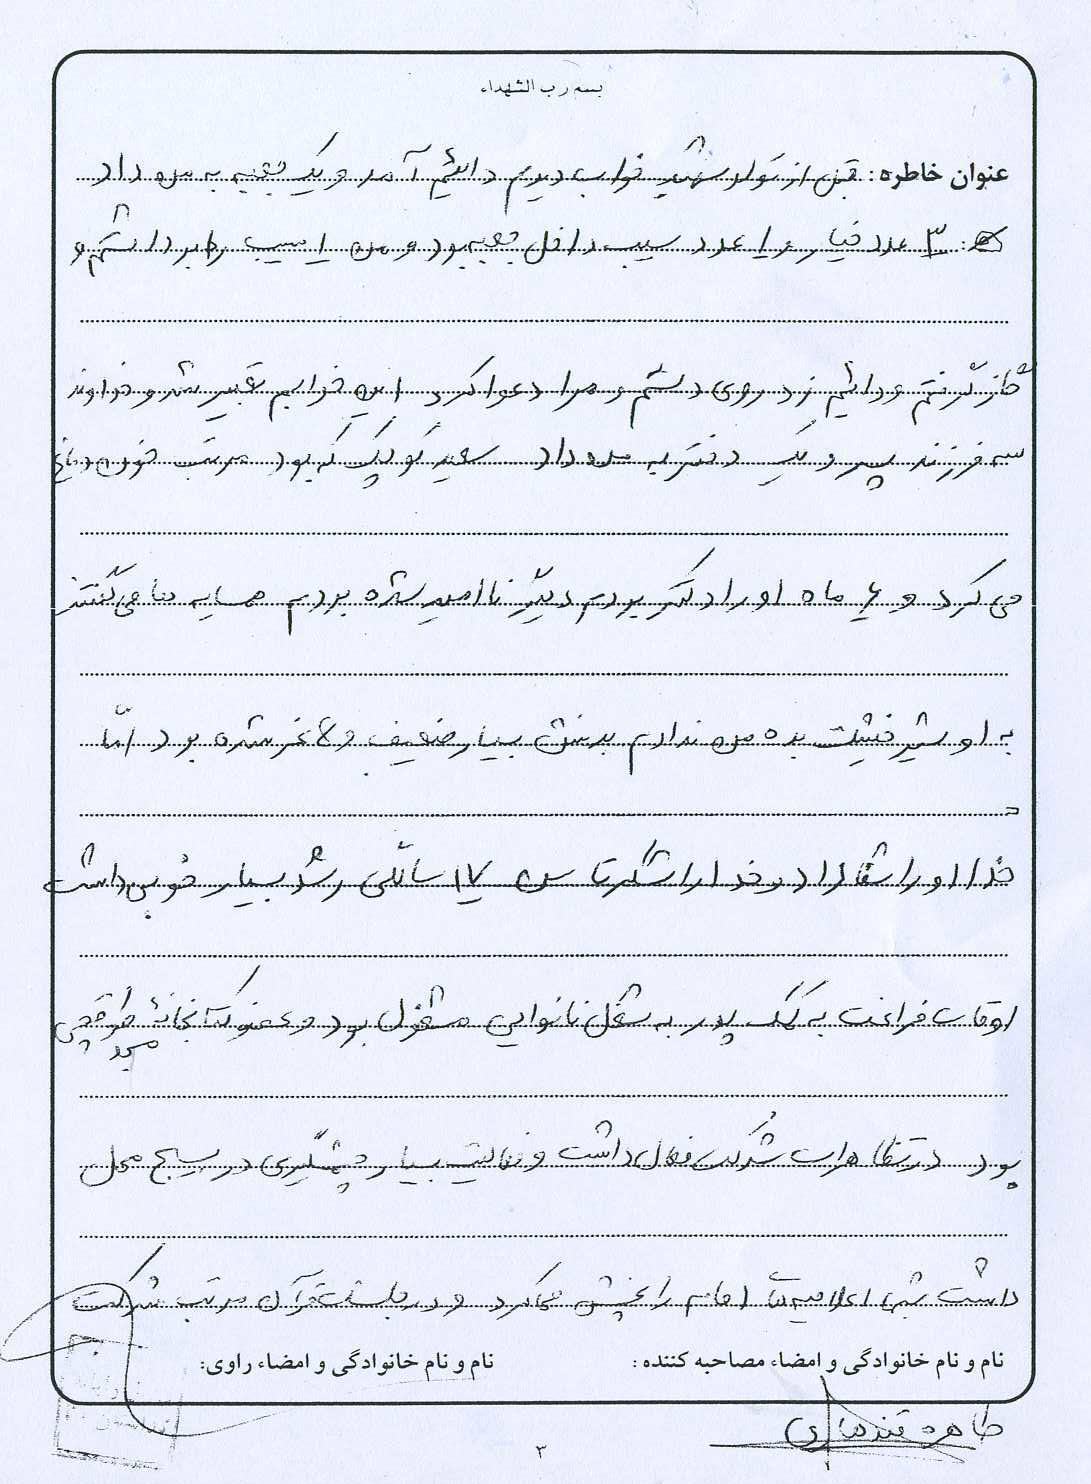 بسم رب الشهداء
عنوان خاطره: قبل از تولد شهید خواب دیدم دائیم آمد و یک جعبه به من داد
۳ عدد خیار و ۱ عدد سیب داخل جعبه بود و من سیب را برداشتم و
گاز گرفتم و دائیم زد روی دستم و مرا دعوا کرد این خوابم تعبیر شد و خداوند
سه فرزند پسر و یک دختر به من داد سعید کوچک که بود مرتب خون دماغ
می کرد و ۶ ماه او را دکتر بردیم دیگر ناامید شده بودم همسایه ها می گفتند
به او شیر خشت بده من ندادم بدنش بسیار ضعیف و لاغر شده بود امّا
خدا او را شفا داد و خدا را شکر تا سن ۱۷ سالگی رشد بسیار خوبی داشت
اوقات فراغت به کمک پدر به شغل نانوایی مشغول بود و عضو کتابخانهٔ
مسجد
بود در تظاهرات شرکت فعال داشت و فعالیت بسیار چشمگیری در بسیج محل
داشت شبها اعلامیه های امام را پخش میکرد و در جلسات قرآن مرتب شرکت
نام و نام خانوادگی و امضاء مصاحبه کننده : نام و نام خانوادگی و امضاء راوی:
طاهره قندهاری
۲